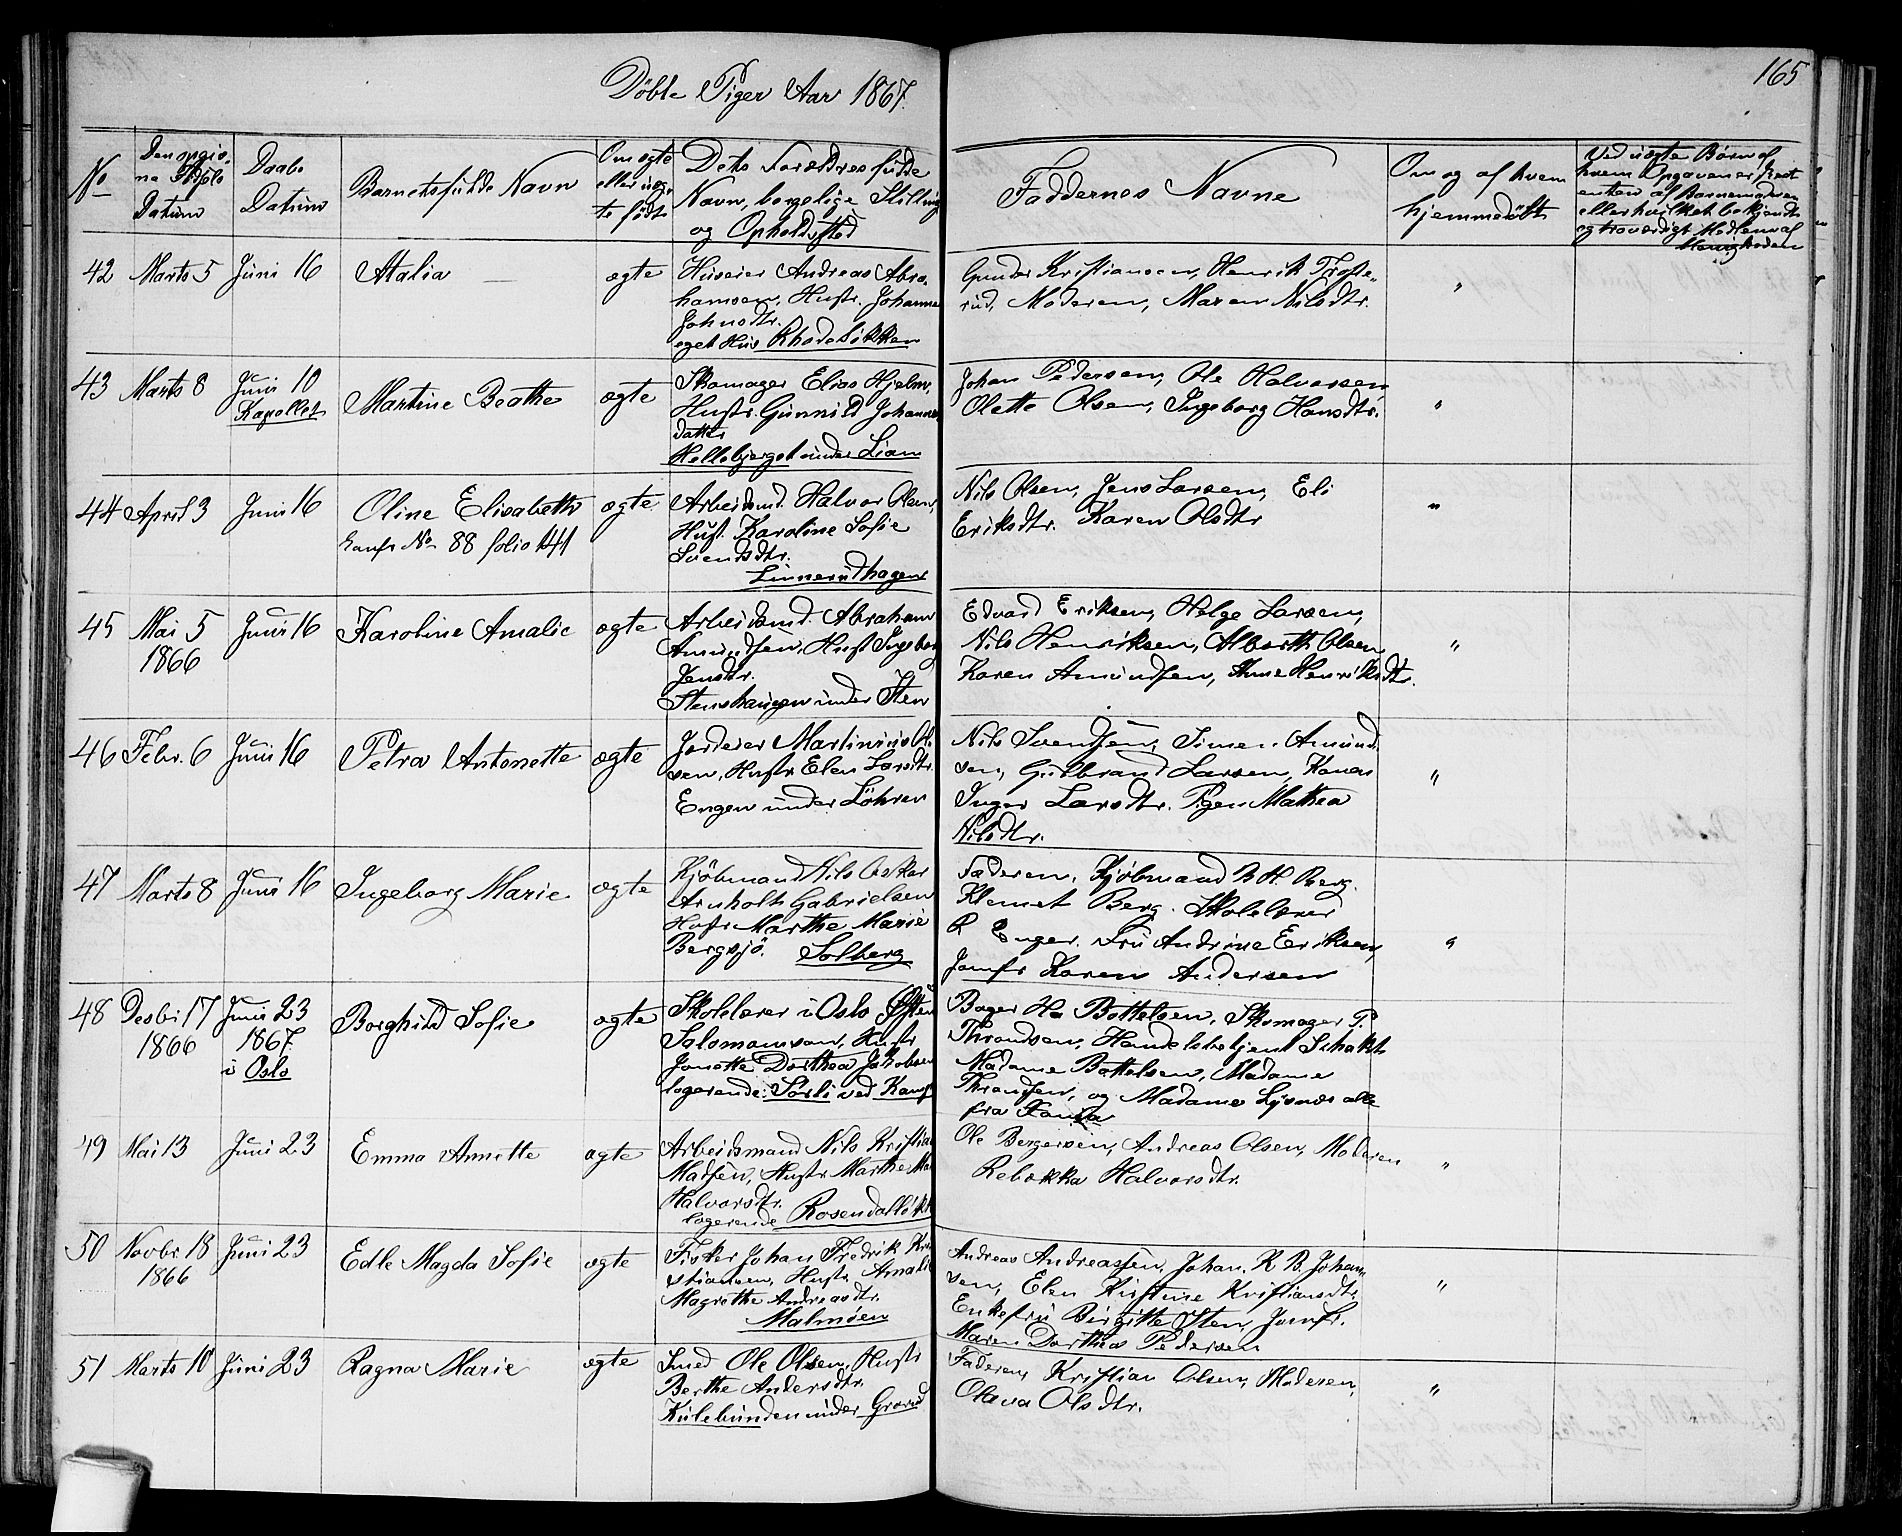 165
Döbte Piger Aar 1867.
No
Den opgiv-
ne Födsels
Datum
Daabs
Datum
Barnets fulde Navn
Om ægte
eller uæg-
te födt
Dets Forældres fulde
Navn, borgelige Stilling
og Opholdssted
Faddernes Navne
Om og af hvem
hjemmedöbt
Ved uægte Börn af
hvem Opgaven er skeet
enten af Barnemoderen
eller hvilket bekjendt
og troværdigt Medlem af
Menigheden
42 Marts 5 Juni 16 Atalia — ægte
Huseier Andreas Abra-
hamsen, Hustr. Johanne
Johnsdtr.
eget Huus Rhodelökken
Gunder Kristiansen, Henrik Troste-
rud, Moderen, Maren Nilsdtr.
"
43 Marts 8 Juni 10
Kapellet
Martine Beathe ægte
Skomager Elias Hjelm,
Hustr. Gunnild Johannes
datter
Hellebjerget under Lian
Johan Pedersen, Ole Halvorsen
Olette Olsen, Ingeborg Hansdtr.
"
44 April 3 Juni 16 Oline Elisabeth
No 88 folio 141
ægte
Arbeidsmd. Halvor Olsen,
Hust. Karoline Sofie
Svendsdtr.
Linnerudhagen
Nils Olsen, Jens Larsen, Eli
Eriksdtr. Karen Olsdtr
"
45 Mai 5
1866
Juni 16 Karoline Amalie ægte
Arbeidsmd. Abraham
Amundsen, Hust Ingeborg
Jensdtr.
Stenshaugen under Sten
Edvard Eriksen, Helge Larsen,
Nils Henriksen, Alberth Olsen
Karen Amundsen, Anne Henriksdtr.
"
46 Febr. 6 Juni 16 Petra Antonette ægte
Jordeier Martinius Ol-
sen, Hustr. Elen Larsdtr.
Engen under Löhren
Nils Svendsen, Simen Amund-
sen, Gulbrand Larsen, Konen
Inger Larsdtr. Pigen Mathea
Nilsdtr.
"
47 Marts 8 Juni 16 Ingeborg Marie ægte
Kjöbmand Nils Oskar
Arnholt Gabrielsen
Hustr Marthe Marie
Bergsjö. Solberg
Faderen, Kjöbmand B. H. Berg.
Klemet Berg. Skolelærer
R Enger. Fru Andrine Eriksen,
Jomfr Karen Andersen
"
48 Desbr 17
1866
Juni 23
1867.
i Oslo
Borghild Sofie ægte
Skolelærer i Oslo Östen
Salomonsson, Hustr
Jonette Dorthea Jakobsen
logerende: Sörli ved Kampen
Bager Ha Bottelsen, Skomager P.
Throndsen, Handelsbetjent Schakt
Madame Bottelsen, Madame
Thronsen, og Madame Lysnæs alle
fra
49 Mai 13 Juni 23 Emma Annette ægte
Arbeidsmand Nils Kristian
Madsen, Hustr. Marthe
Halvorsdtr.
logerende Rosendallök
Ole Bergersen, Andreas Olsen, Moderen
Rebekka Halvorsdtr.
"
50 Novbr 18
1866
Juni 23 Edle Magda Sofie ægte
Fisker Johan Fredrik Kri-
stiansen, Hustr. Amalie
Magrethe Andreasdtr.
Malmöen
Andreas Andreassen, Johan. K B. Johan-
sen, Elen Kirstine Kristiansdtr.
Enkefru Birgitte Sten, Jomfr.
Maren Dorthea Pedersen
"
51 Marts 10 Juni 23 Ragna Marie ægte
Smed Ole Olsen, Hustr
Berthe Andersdtr.
Kulebunden under Grorud
Faderen, Kristian Olsen, Moderen,
Olava Olsdtr.
"